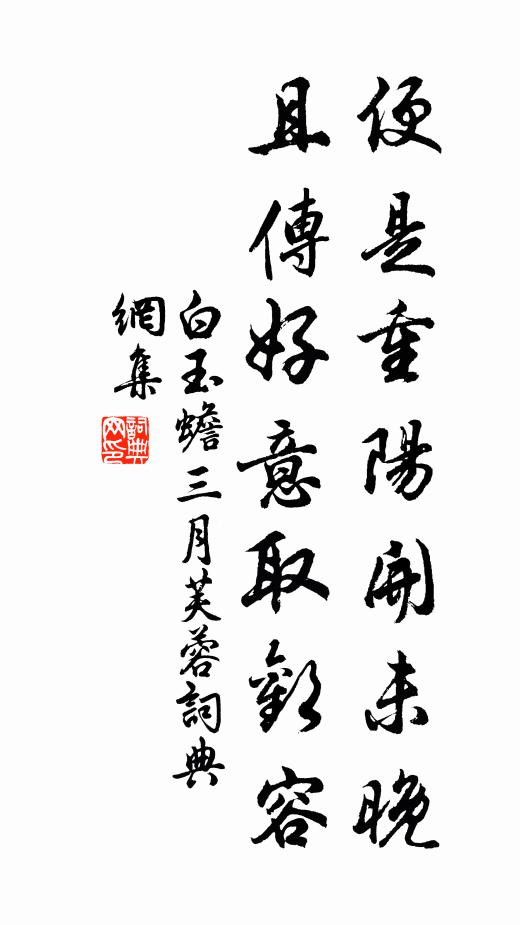 便是重陽開未晚
且傳好意取歡容
白玉蟾三月芙蓉詞典
網集
詞典网印